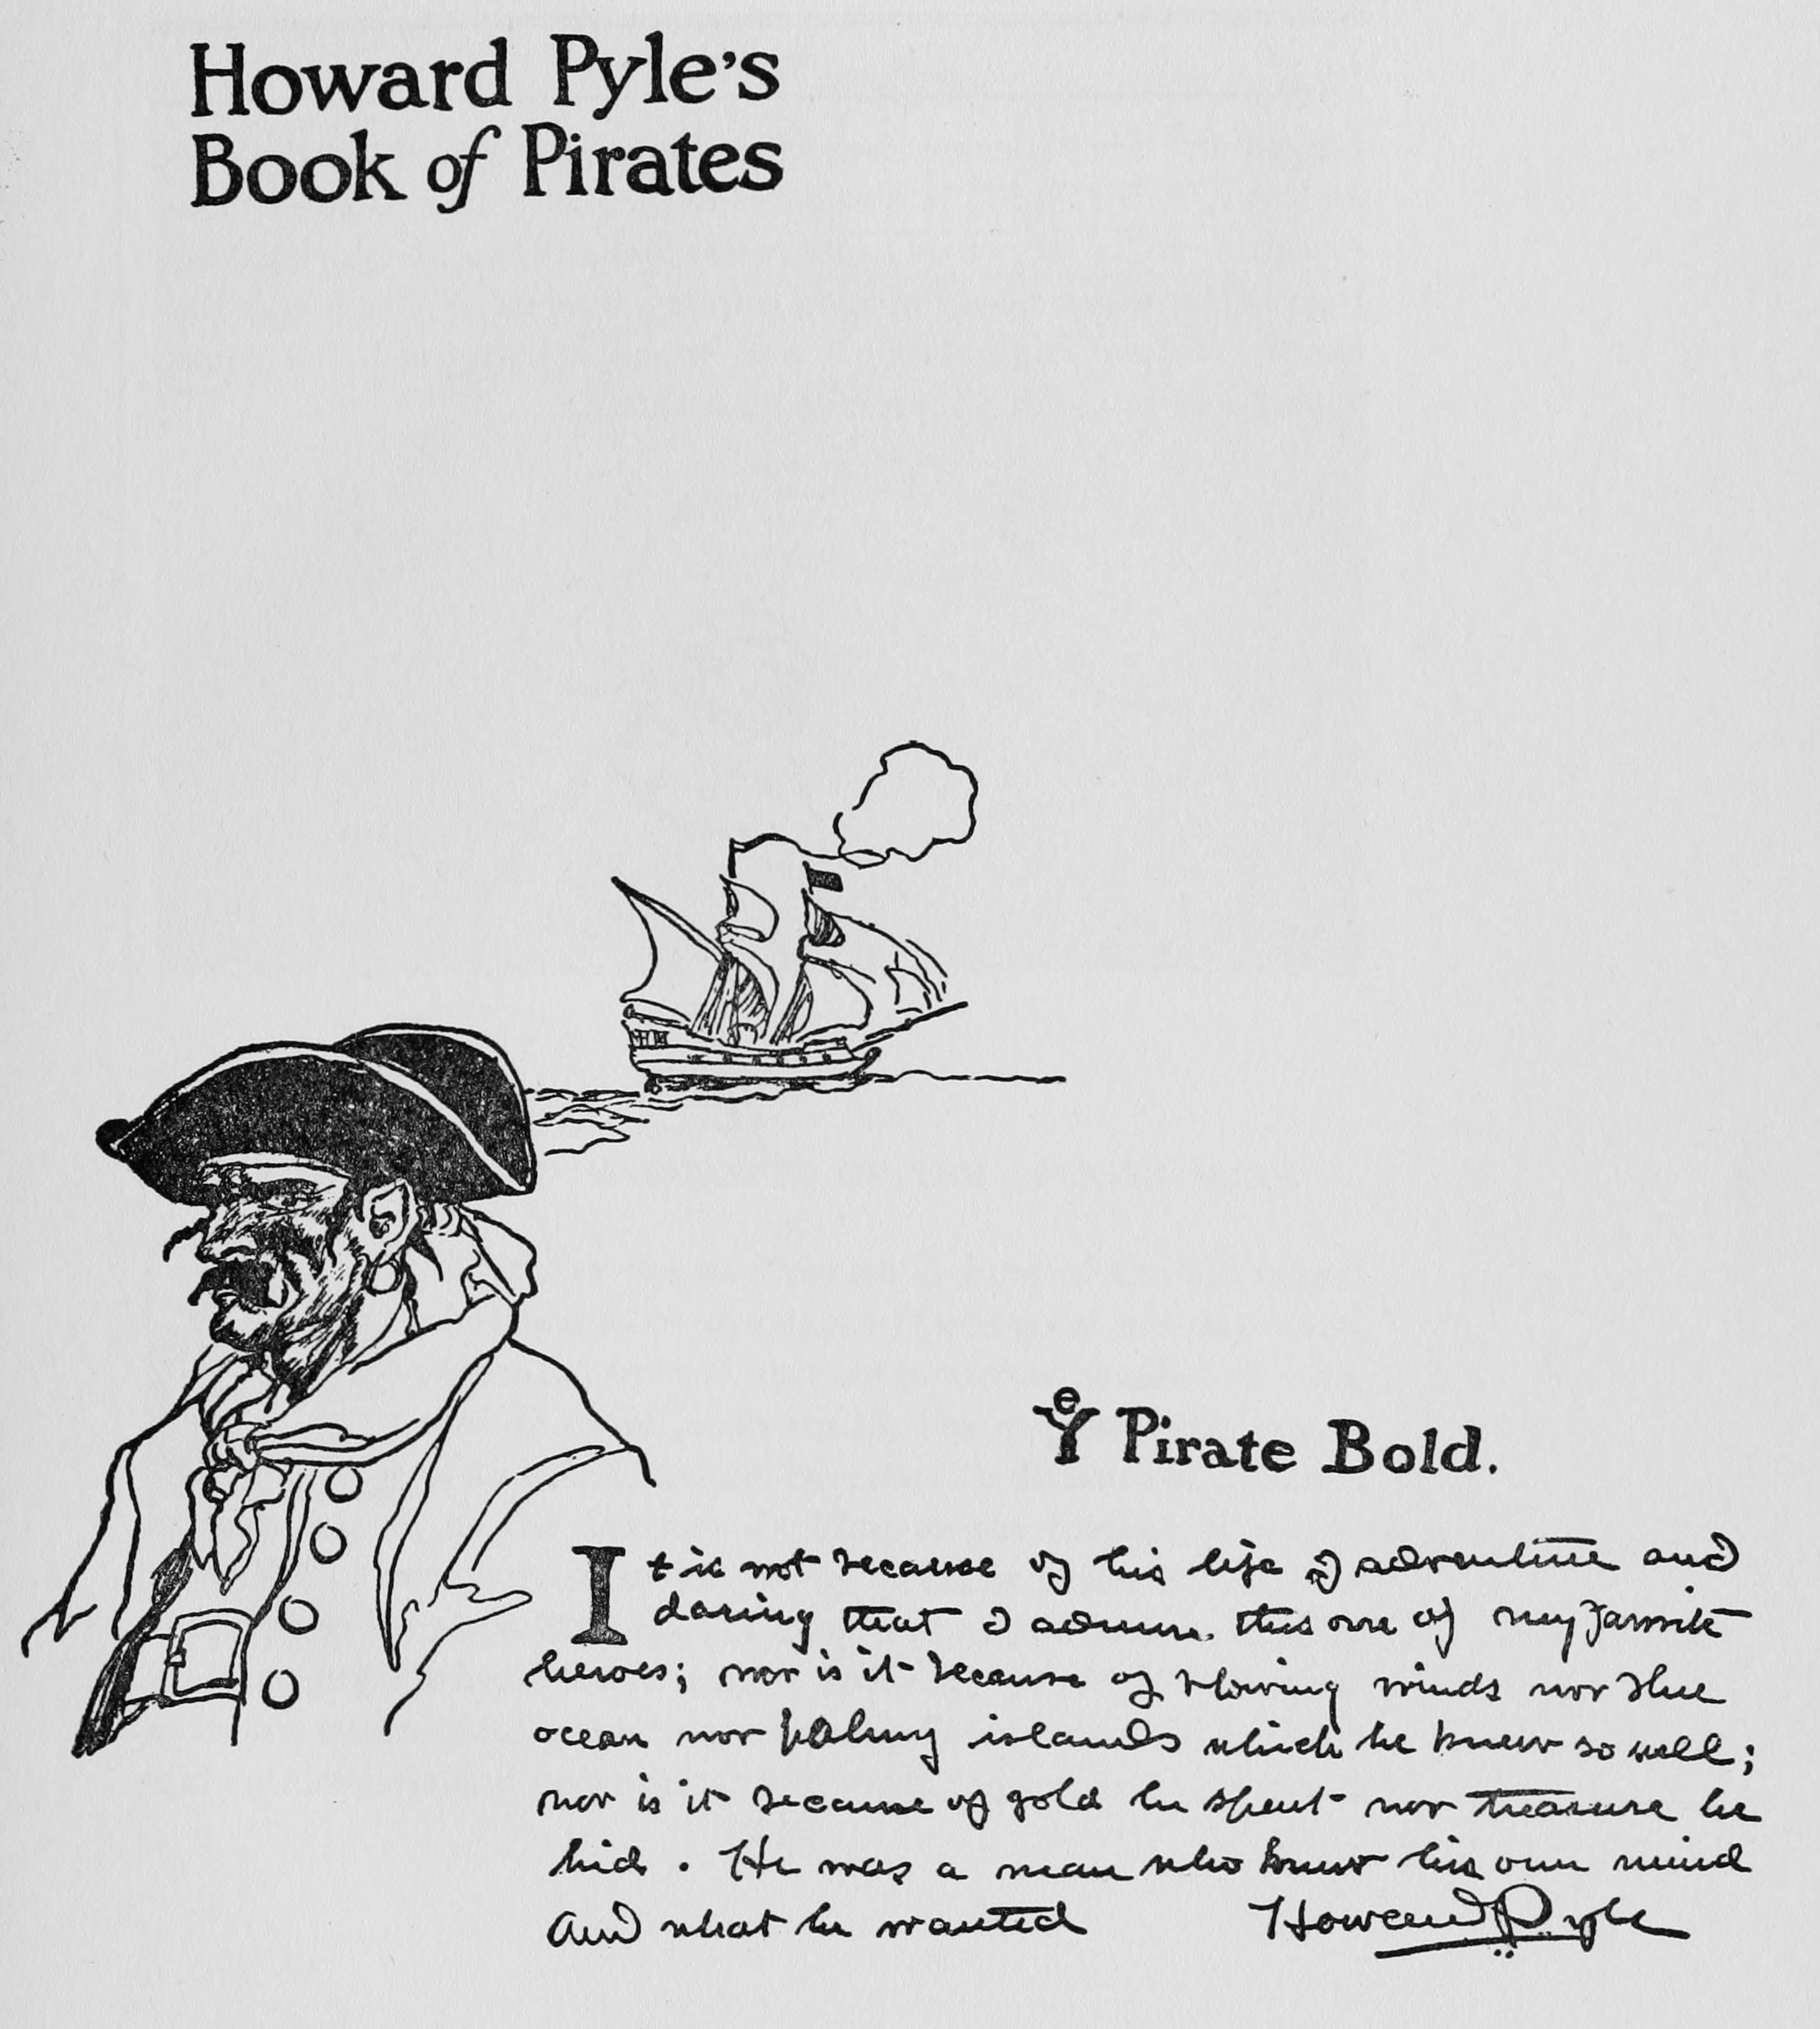 Howard Pyle's
Book of Pirates
Ye Pirate Bold.
It is not because of his life of adventure and
daring that I admire this one of my favorite
heroes; nor is it because of blowing winds nor blue
ocean nor palmy islands which he knew so well;
nor is it because of gold he spent nor treasure he
hid. He was a man who knew his own mind
and what he wanted
Howard Pyle